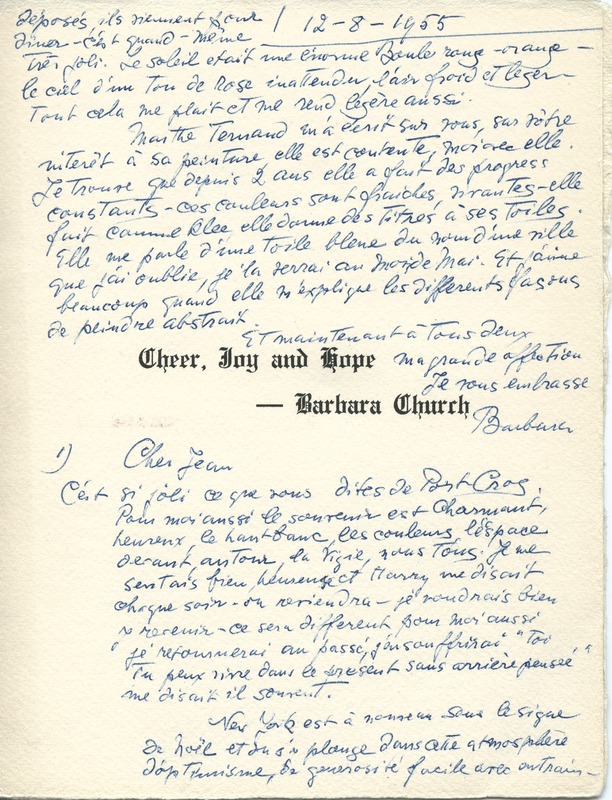 déposés, ils viennent pour
dîner - c'est quand-même
12-8-1955
très joli. Le soleil était une énorme Boule rouge-orange -
le ciel d'un ton de Rose inattendu, l'air froid et léger -
Tout cela me plaît et me rend légère aussi.
Marthe Ternand m'a écrit sur vous, sur vôtre
intérêt à sa peinture, elle est contente, moi avec elle.
Je trouve que depuis 2 ans elle a fait des progress
constants - ces couleurs sont fraîches, vivantes - elle
fait comme Klee elle donne des titres à ses toiles.
Elle me parle d'une toile bleue du nom d'une ville
que j'ai oublié, je la verrai au mois de Mai. Et j'aime
beaucoup quand elle m'explique les différents façons
de peindre abstrait.
Et maintenant à tous deux
ma grande affection
Je vous embrasse
Barbara
Cheer, Joy and Hope
— Barbara Church
1) Cher Jean
C'est si joli ce que vous dites de Port Cros.
Pour moi aussi le souvenir est charmant,
heureux, le haut banc, les couleurs, l'espace
devant, autour, la Vigie, nous tous. Je me
sentais bien, heureuse et Harry me disait
chaque soir - on reviendra - je voudrais bien
y revenir - ce sera différent pour moi aussi
"je retournerai au passé, j'en souffrirai" "Toi
Tu peux vivre dans le présent sans arrière pensée"
me disait il souvent.
New York est à nouveau sous le signe
de Noël et on plonge dans cette atmosphère
d'optimisme, de générosité facile avec entrain -